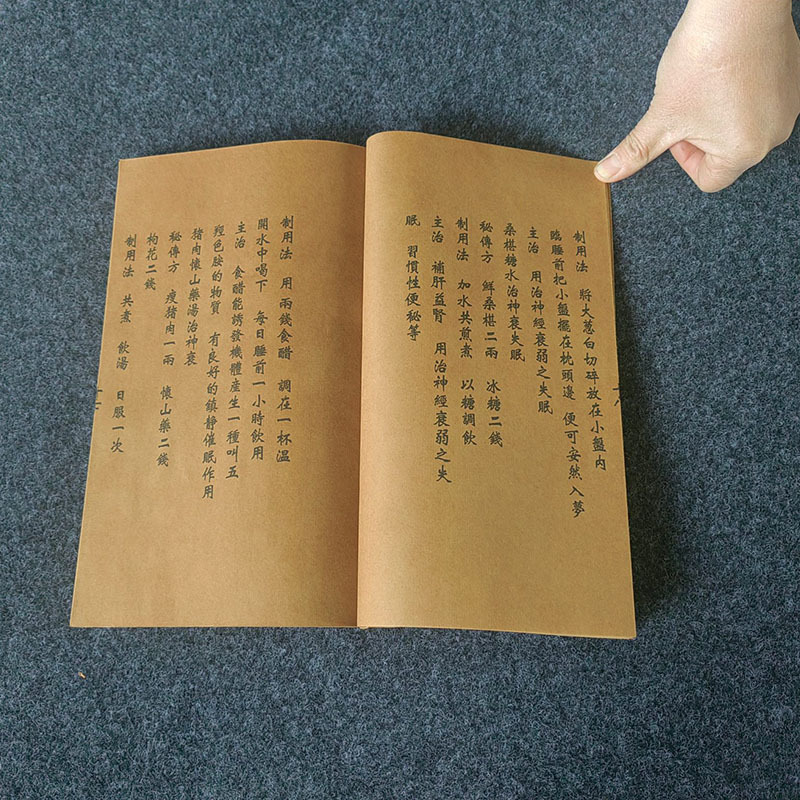 制用法 將大蔥白切碎放在小盤內
臨睡前把小盤擺在枕頭邊 便可安然入夢
主治 用治神經衰弱之失眠
桑椹糖水治神衰失眠
秘傳方 鮮桑椹二兩 冰糖二錢
制用法 加水共煎煮 以糖調飲
主治 補肝益腎 用治神經衰弱之失
眠 習慣性便秘等
制用法 用兩錢食醋 調在一杯溫
開水中喝下 每日睡前一小時飲用
主治 食醋能誘發機體產生一種叫五
羥色胺的物質 有良好的鎮靜催眠作用
豬肉懷山藥湯治神衰
秘傳方 瘦豬肉一兩 懷山藥二錢
枸花二錢
制用法 共煮 飲湯 日服一次